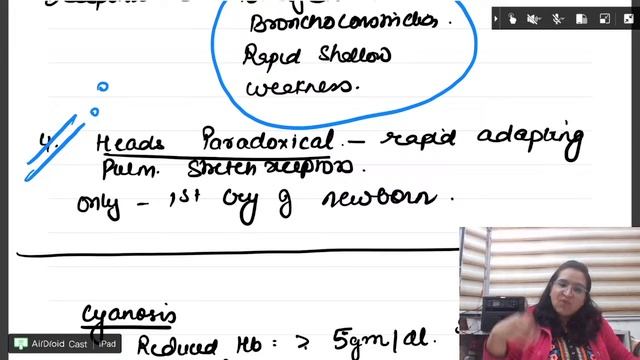 Bronchoconstriction.
Rapid Shallow
weakness.
4. Heads Paradoxical - rapid adapting
Pulm. Stretch receptors.
only - 1st cry of newborn.
Cyanosis
Reduced Hb : > 5gm/dl.
AirDroid Cast | iPad